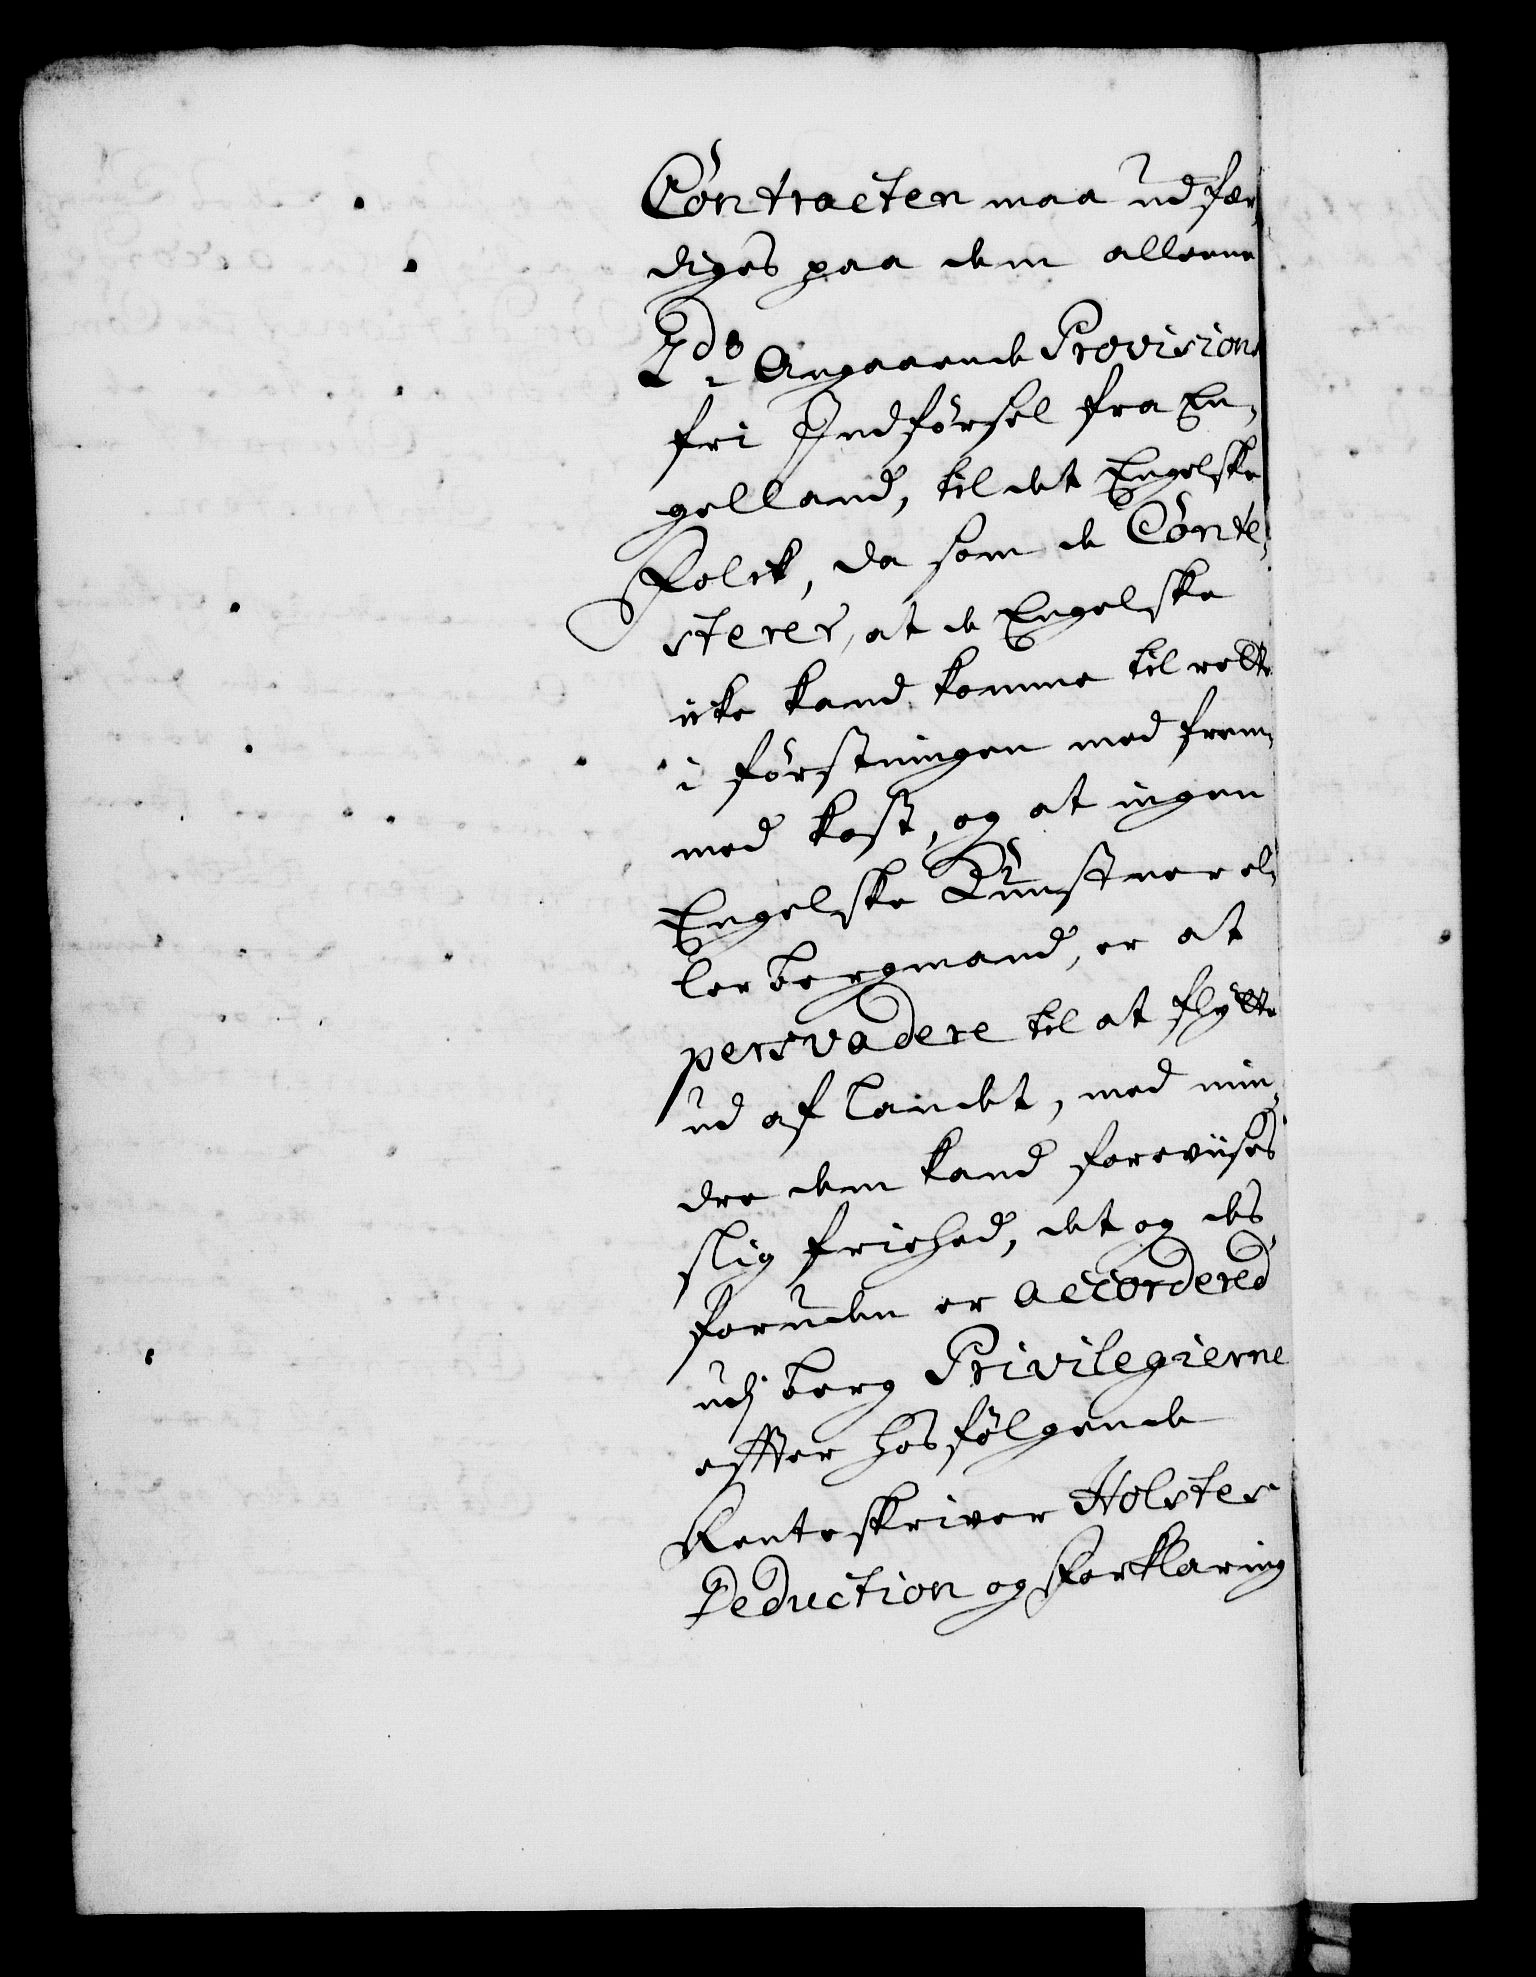 Contracten maa udfær¬
diges paa dem alleene
2do Angaaende Provisions
fri Indførsel fra En¬
gelland, til det Engelske
Folck, da som de Conte¬
sterer, at de Engelske
icke kand komme til rette
i förstningen med frem¬
med kost, og at ingen
Engelske Kunstner el¬
ler bergmand, er at
persvadere til at flytte
ud af landet, med min¬
dre dem kand foreviises
slig friehed, det og des¬
foruden er accordered
udj berg Privilegierne
effter hosfölgende
Renteskriver Holstes
Deduction og Forklaring